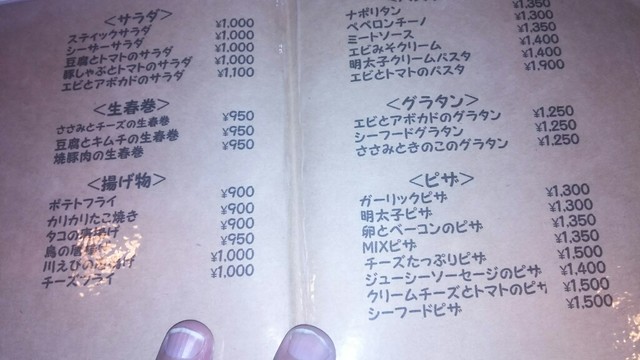 <サラダ>
スティックサラダ ¥1,000
シーザーサラダ ¥1,000
豆腐とトマトのサラダ ¥1,000
豚しゃぶとトマトのサラダ ¥1,000
エビとアボカドのサラダ ¥1,100
<生春巻>
ささみとチーズの生春巻 ¥950
豆腐とキムチの生春巻 ¥950
焼豚肉の生春巻 ¥950
<揚げ物>
ポテトフライ ¥900
カリカリたこ焼き ¥900
タコの唐揚げ ¥900
鳥の唐揚げ ¥950
川えびの唐揚げ ¥1,000
チーズフライ ¥1,000
ナポリタン ¥1,350
ペペロンチーノ ¥1,300
ミートソース ¥1,350
エビみそクリーム ¥1,400
明太子クリームパスタ ¥1,400
エビとトマトのパスタ ¥1,900
<グラタン>
エビとアボカドのグラタン ¥1,250
シーフードグラタン ¥1,250
ささみときのこのグラタン ¥1,250
<ピザ>
ガーリックピザ ¥1,300
明太子ピザ ¥1,300
卵とベーコンのピザ ¥1,350
MIXピザ ¥1,350
チーズたっぷりピザ ¥1,500
ジューシーソーセージのピザ ¥1,400
クリームチーズとトマトのピザ ¥1,500
シーフードピザ ¥1,500